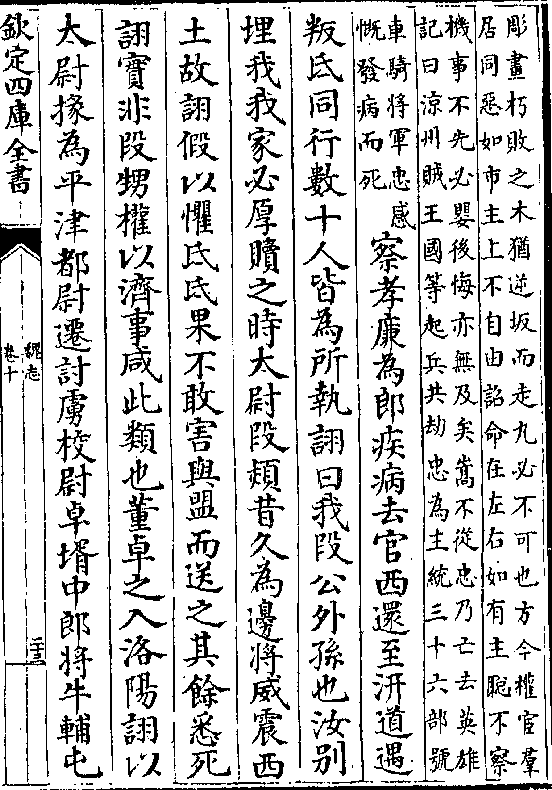 彫畫朽敗之木猶逆坂而走丸必不可也方今權宦羣
居同惡如市主上不自由詔命在左右如有主聰不察
機事不先必嬰後悔亦無及矣嵩不從忠乃亡去英雄
記曰涼州賊王國等起兵共劫忠為主統三十六部號
車騎將軍忠感
慨發病而死
察孝廉為郎疾病去官西還至汧道遇
叛氐同行數十人皆為所執詡曰我段公外孫也汝別
埋我我家必厚贖之時太尉段熲昔久為邊將威震西
土故詡假以懼氐氐果不敢害與盟而送之其餘悉死
詡實非段甥權以濟事咸此類也董卓之入洛陽詡以
太尉掾為平津都尉遷討虜校尉卓壻中郎將牛輔屯
欽定四庫全書
魏志
卷十
二十三